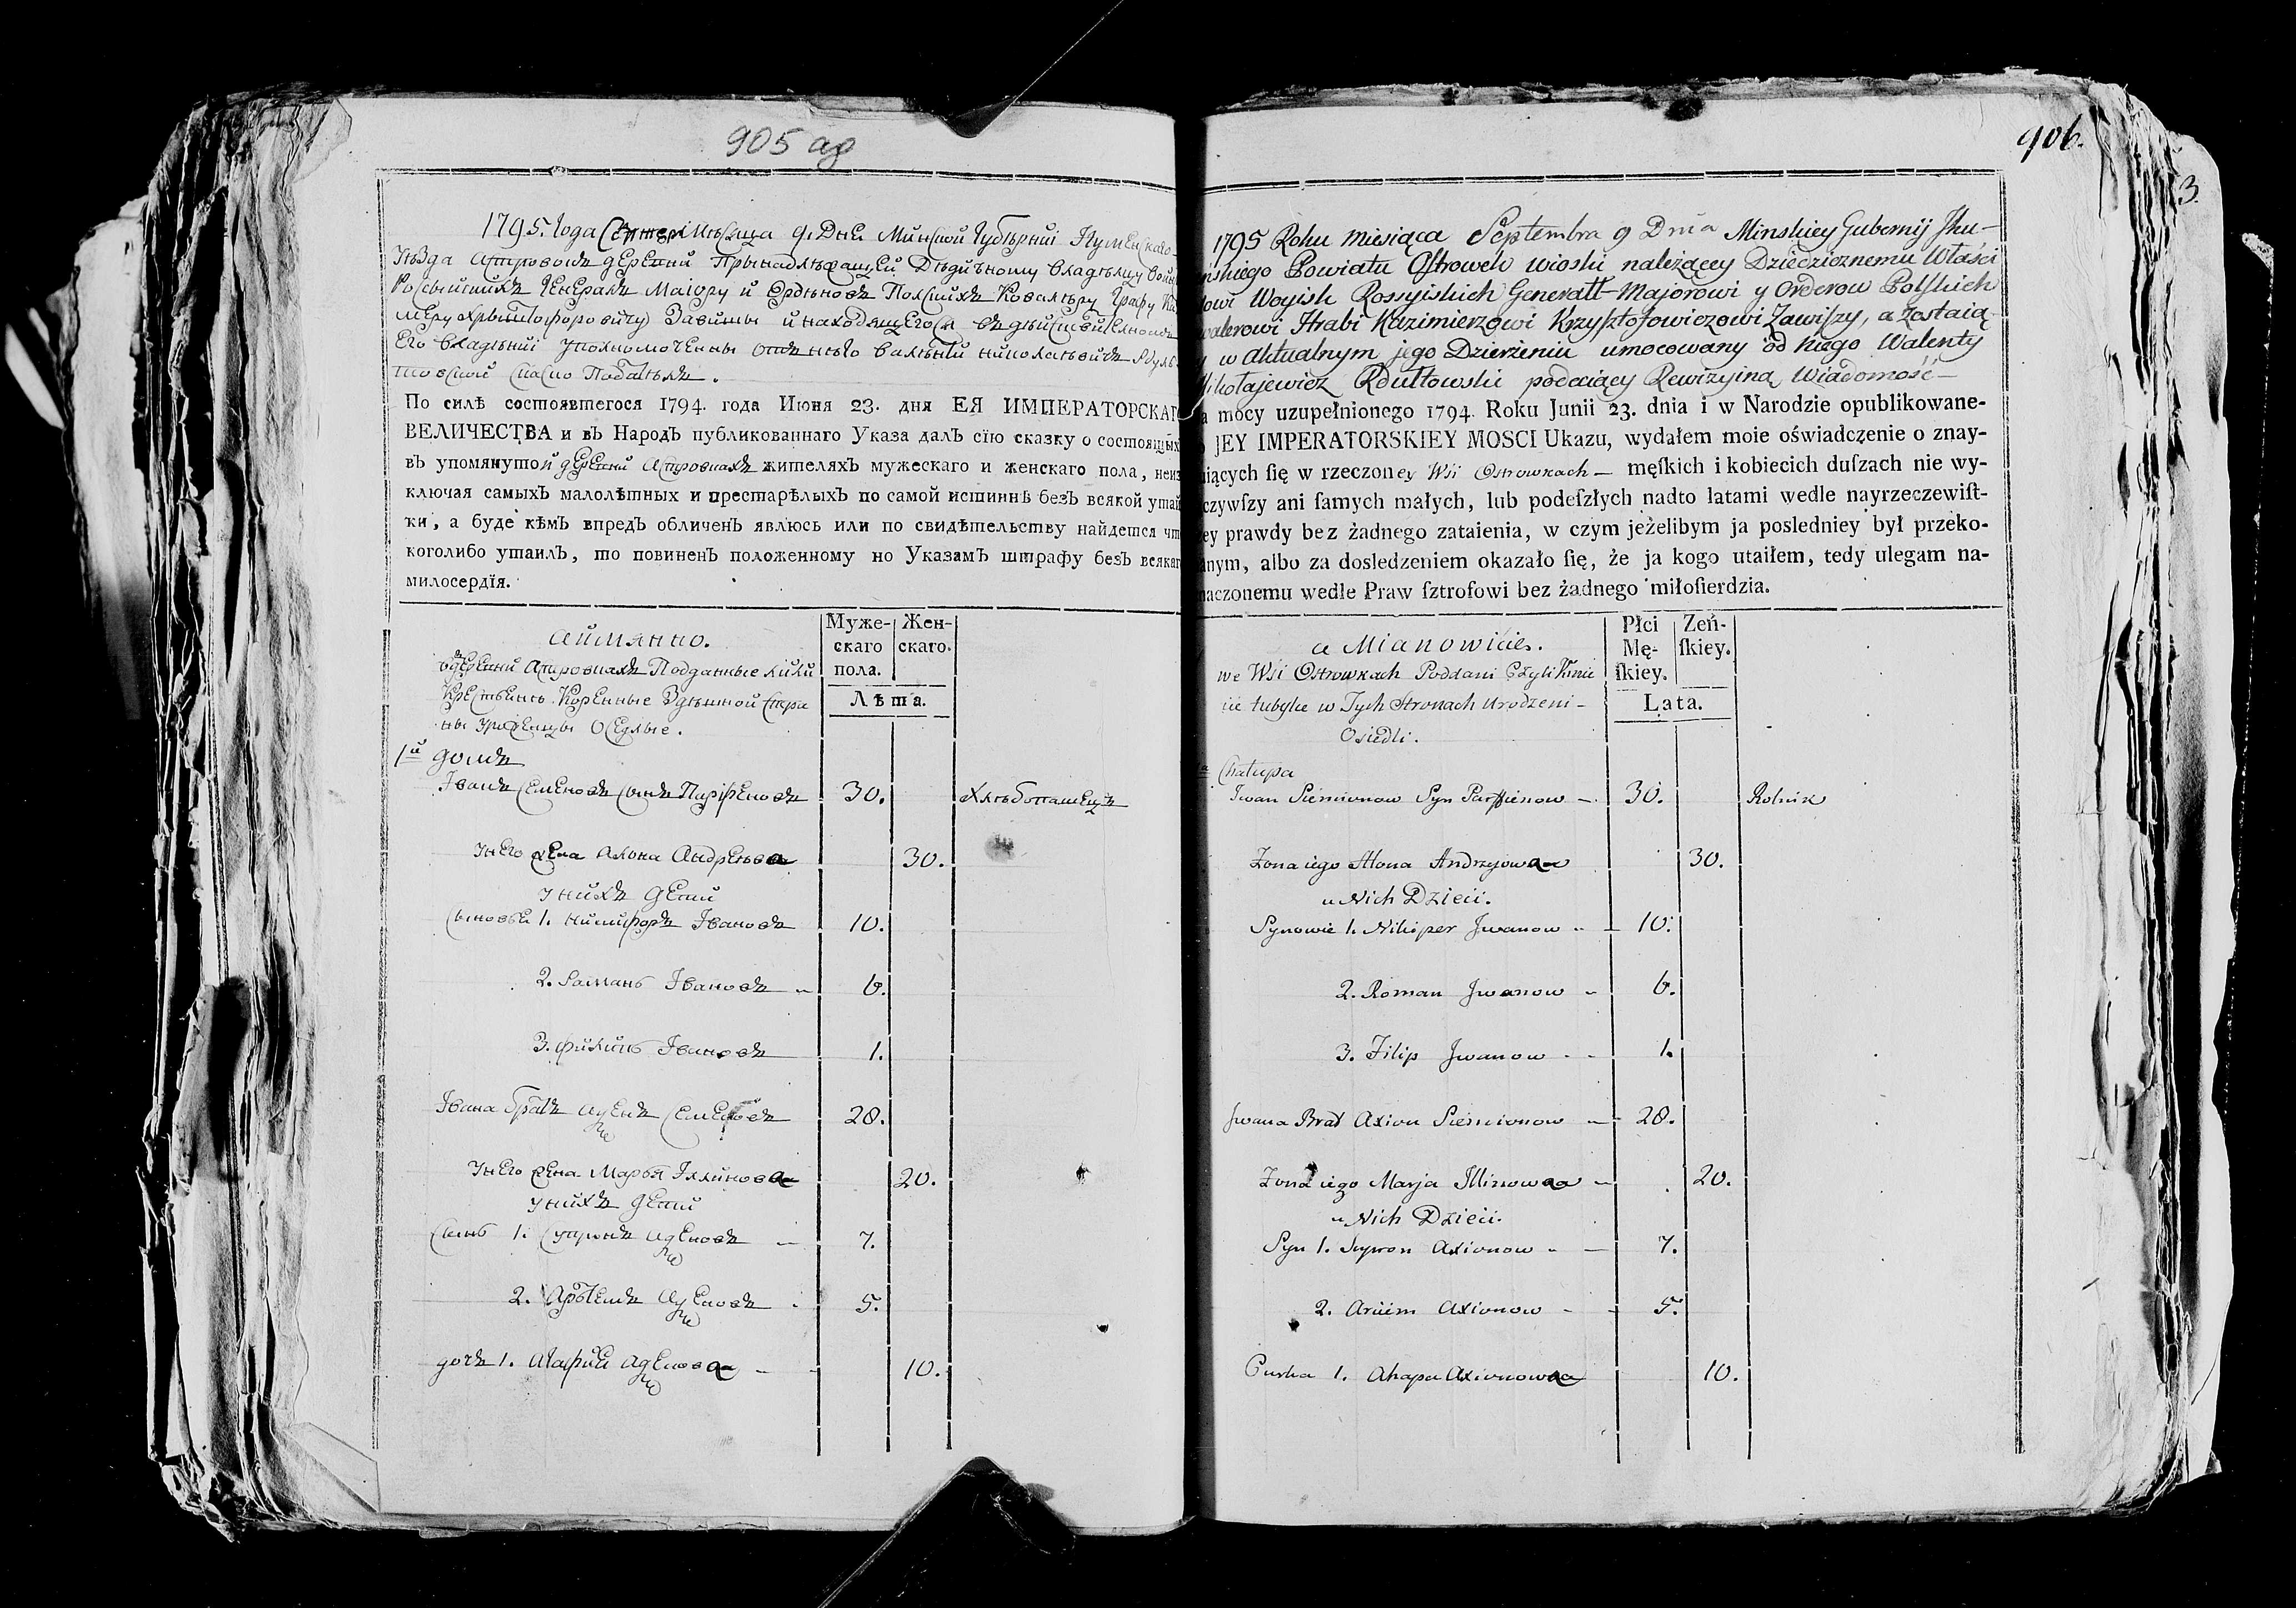 905 ад
1795. года Сентяб: Мѣсяца 9. Дне Минской Губерніи Игуменскаго
Уѣзда Астровокъ деревни Принадлежащей Дѣдичному Владѣлцу Войскъ
Россыискихъ Генералъ Маіору и Ордѣновъ Полскихъ Ковалѣру Графу
Зависшы и находящегося въ дѣйствителномъ
его владѣнии уполномоченны отъ него Валѣнтий Николаевичъ
По силѣ состоявшегося 1794. года Июня 23. дня ЕЯ ИМПЕРАТОРСКАГ
ВЕЛИЧЕСТВА и въ Народъ публикованнаго Указа далъ сїю сказку о состоящых
въ упомянутой деревни Астровкахъ жителяхъ мужескаго и женскаго пола, неиз
ключая самыхъ малолѣтных и престарѣлыхъ по самой истиннѣ безъ всякой утай
ки, а буде кѣмъ впредъ обличенъ явлюсь или по свидѣтельству найдется чт
коголибо утаилъ, то повиненъ положенному но Указамъ штрафу безъ всякаг
милосердїя.
аймянно.
Муже-
скаго
пола.
Жен-
скаго.
Лѣта.
вдеревни Астровкахъ Подданные или
Крестьянъ Коренные Здѣшной Стра
ны уроженцы Оселые.
1й домъ
Іванъ Семеновъ сынъ Парфеновъ 30. Хлѣбопашецъ
унего жена Алона Андреева 30.
унихъ дети
Сыновьи 1. Никифоръ Івановъ 10.
2. Раманъ Івановъ 6.
3. филипъ Івановъ 1.
Івана братъ Семеновъ 28.
унего жена Марья Іллинова 20.
унихъ дети
Сынъ 1. Супронъ 7.
2. Артемъ 5.
дочъ 1. 10.
906.
3.
1795 Roku miesiąca Septembra 9 Dnia Minskiey Gubernij Jhu-
mińskiego Powiatu Ostrowek wioski należącey Dziedzicznemu Właści
lowi Woyisk Rossyiskich Generałł-Majorowi y Orderow Polskich
walerowi Hrabi Kazimierzowi Krzysztofowiczowi Zawiszy, a zostaią
y w aktualnym jego Dzierżeniu umocowany od niego Walenty
Mikołajewicz Rdułtowski podaiący Rewizyiną Wiadomość —
a mocy uzupełnionego 1794. Roku Junii 23. dnia i w Narodzie opublikowane-
o JEY IMPERATORSKIEY MOSCI Ukazu, wydałem moie oświadczenie o znay-
uiących ſię w rzeczoney Wśi Ostrowkach — męſkich i kobiecich duſzach nie wy-
czywſzy ani ſamych małych, lub podeſzłych nadto latami wedle nayrzeczewiſt-
ey prawdy bez żadnego zataienia, w czym jeżelibym ja posledniey był przeko-
anym, albo za dosledzeniem okazało ſię, że ja kogo utaiłem, tedy ulegam na-
naczonemu wedle Praw ſztrofowi bez żadnego miłoſierdzia.
a Mianowicie.
Płci
Mę-
ſkiey.
Zeń-
ſkiey.
Lata.
we Wśi Ostrowkach Poddani Czyli Kmie
cie tubylce w Tych Stronach Urodzeni -
Osiedli.
1a Chałupa
Jwan Siemionow Syn Parfienow — 30. Rolnik
Zona iego Alona Andrzejowa 30.
u Nich Dzieci.
Synowie 1. Nikiper Jwanow — 10.
2. Roman Jwanow - 6.
3. Filip Jwanow - 1.
Jwana Brat Axion Siemionow — 28.
Zona iego Marja Illinowa — 20.
u Nich Dzieci.
Syn 1. Supron Axionow - 7.
2. Arciem Axionow - 5.
Curka 1. Ahapa Axionowa 10.